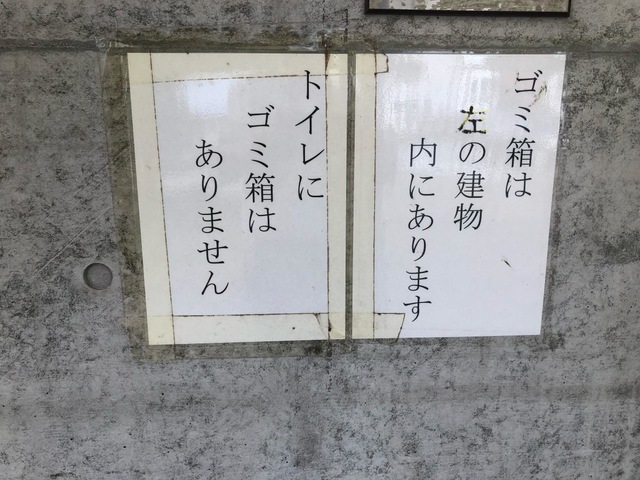 ゴミ箱は
左の建物
内にあります
トイレに
ゴミ箱は
ありません